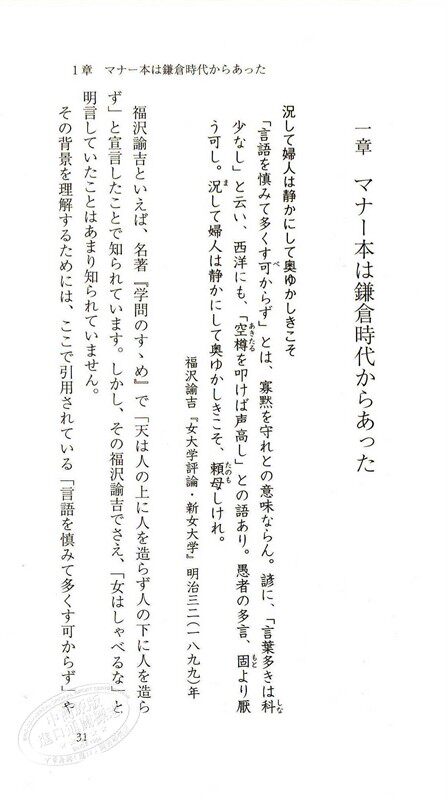 1章 マナー本は鎌倉時代からあった
一章 マナー本は鎌倉時代からあった
況して婦人は静かにして奥ゆかしきこそ
「言語を慎みて多くす可からず」とは、寡黙を守れとの意味ならん。諺に、「言葉多きは科
少なし」と云い、西洋にも、「空樽を叩けば声高し」との語あり。愚者の多言、固より厭
う可し。況して婦人は静かにして奥ゆかしきこそ、頼母しけれ。
福沢諭吉『女大学評論・新女大学』明治三二(一八九九)年
福沢諭吉といえば、名著『学問のすゝめ』で「天は人の上に人を造らず人の下に人を造ら
ず」と宣言したことで知られています。しかし、その福沢諭吉でさえ、「女はしゃべるな」と
明言していたことはあまり知られていません。
その背景を理解するためには、ここで引用されている「言語を慎みて多くす可からず」や
31